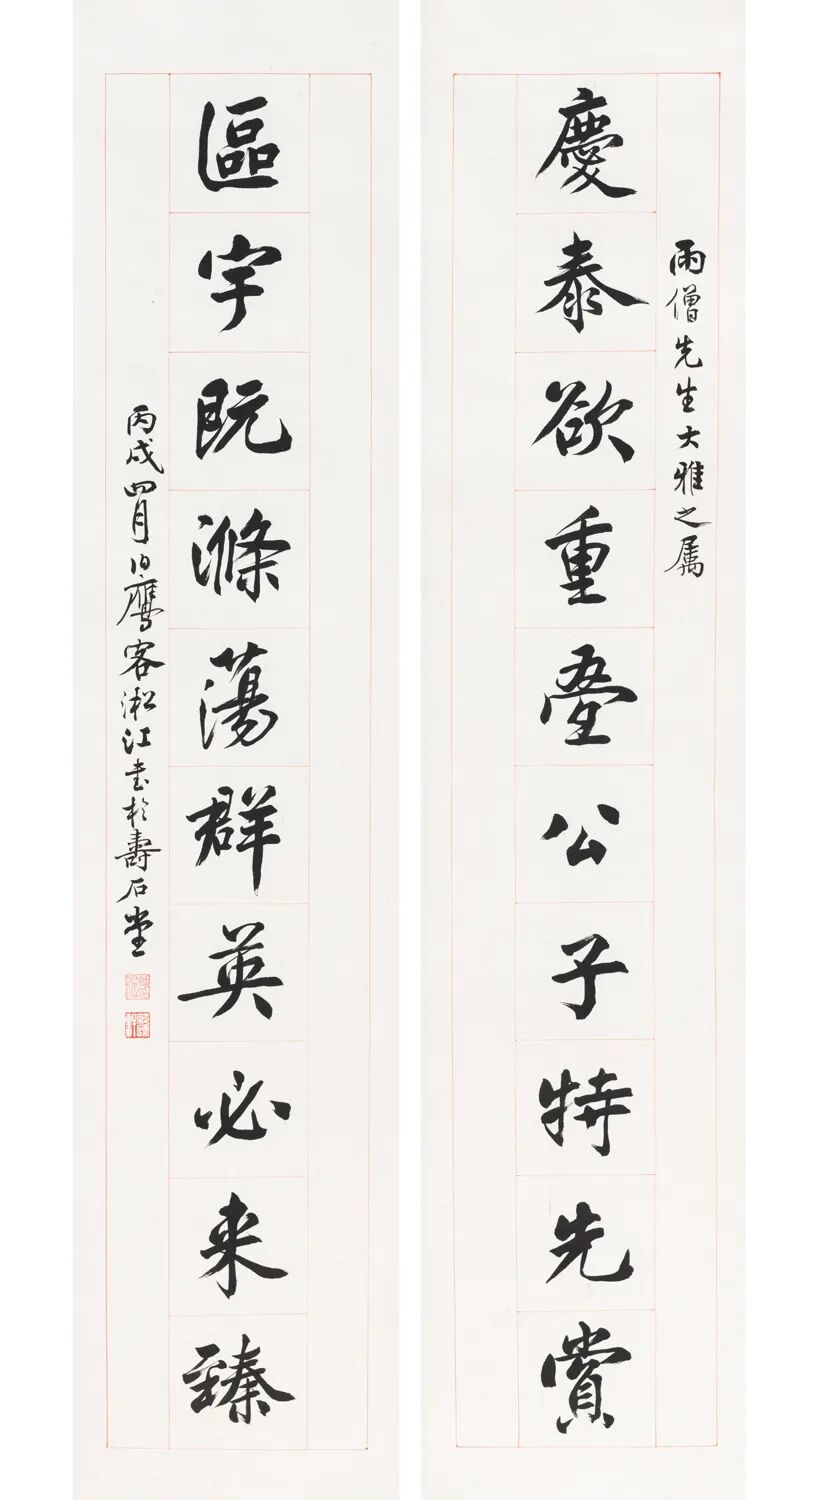 雨僧先生大雅之属
慶泰欲重臺公子特先賞
區宇既滌蕩群英必来臻
丙戌四月伯鷹客淞江书於壽石堂